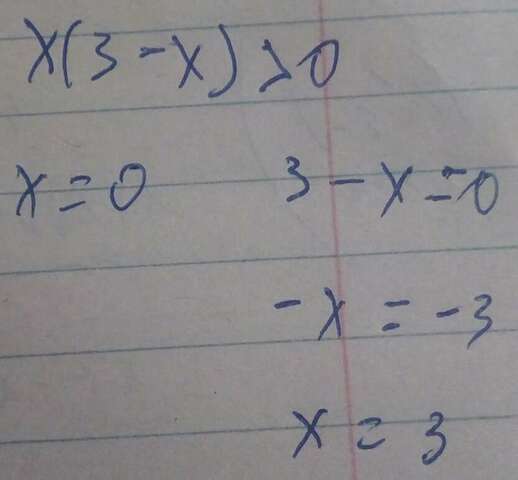 x(3-x)>0
x=0 3-x=0
-x=-3
x=3